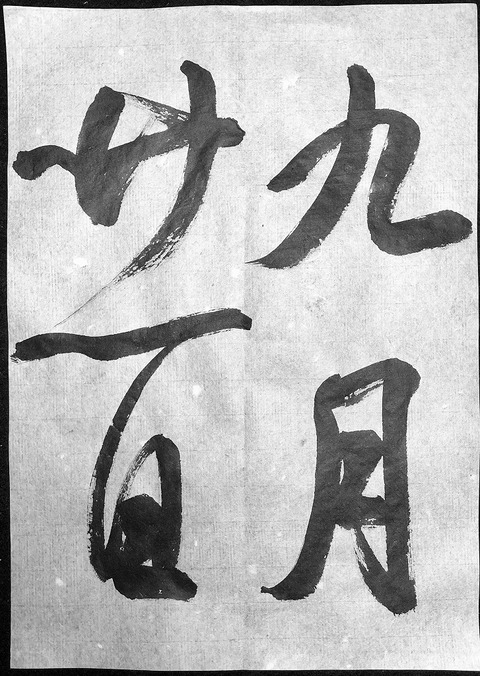 九月
廿一日